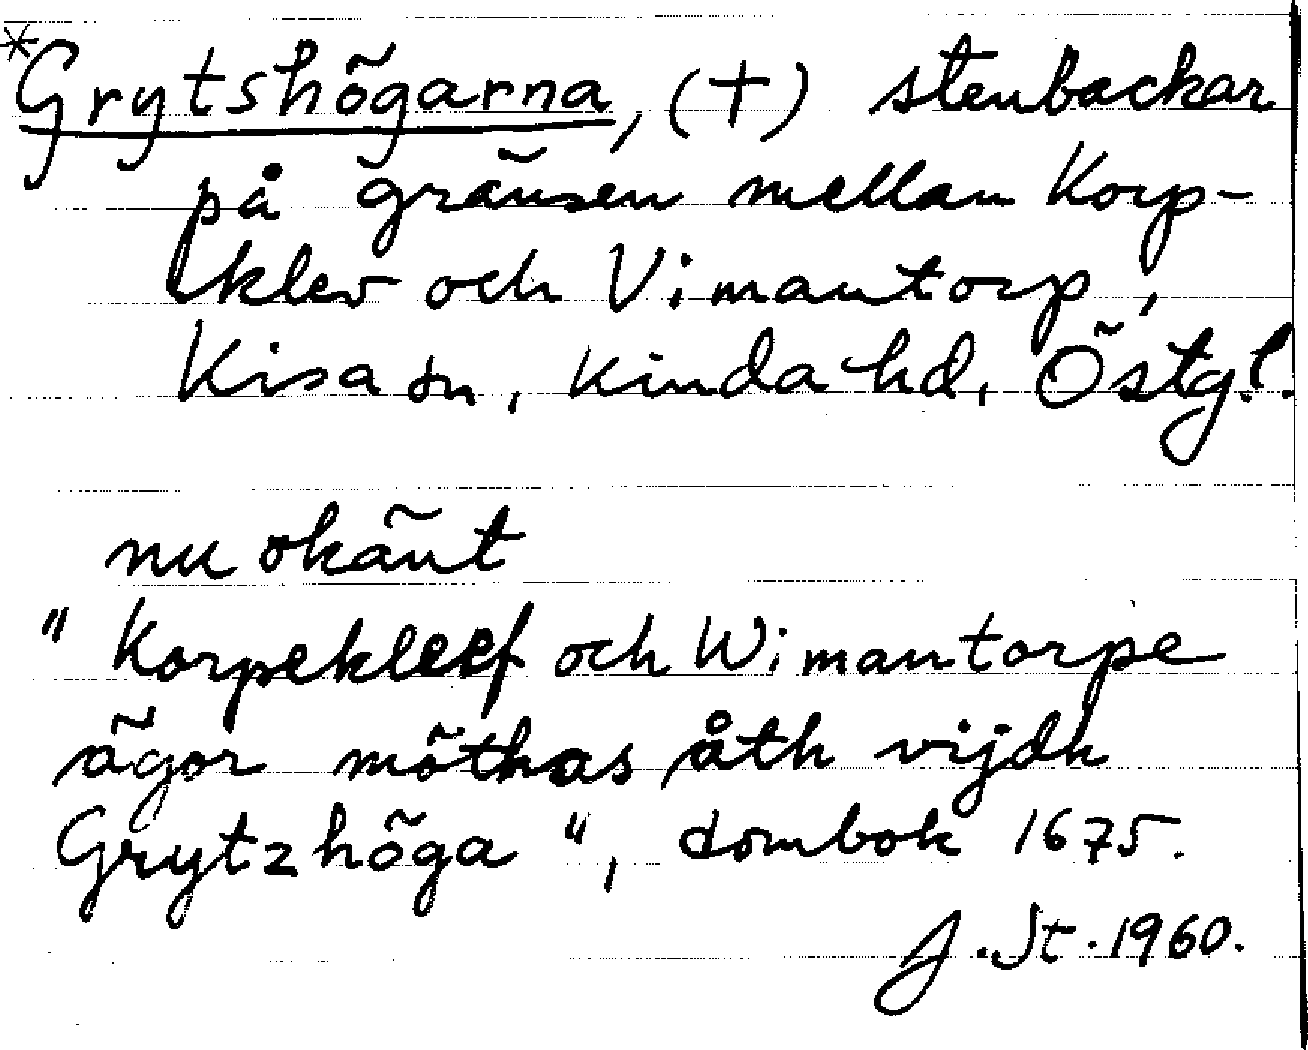 *Grytshögarna, (†) stenbackar
på gränsen mellan Korp-
klev och Vimantorp,
Kisa sn, Kinda hd, Östg.l.
nu okänt
"Korpekleef och Wimantorpe
ägor möthas åth vijdh
Grytzhöga", dombok 1675.
J. St. 1960.